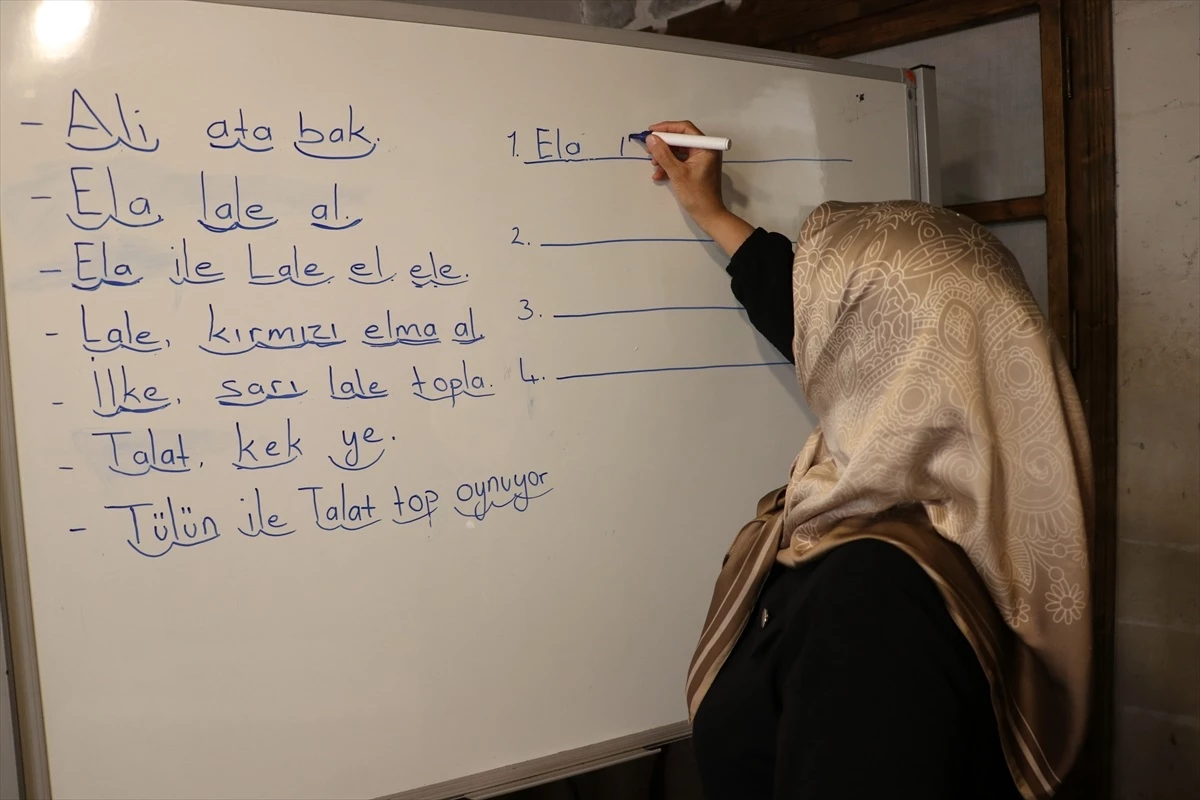 - Ali ata bak.
- Ela lale al.
- Ela ile Lale el ele.
- Lale, kırmızı elma al.
- İlke, sarı lale topla.
- Talat, kek ye.
- Tülün ile Talat top oynuyor
1. Ela
2.
3.
4.